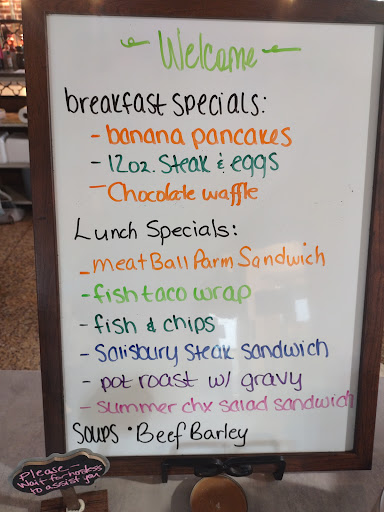 Welcome
breakfast specials:
- banana pancakes
- 12oz. Steak & eggs
- Chocolate waffle
Lunch Specials:
- meatBall Parm Sandwich
- fish taco wrap
- fish & chips
- Salisbury Steak sandwich
- pot roast w/ gravy
- summer chx salad sandwich
Soups • Beef Barley
Please —
Wait for hostess
to assist you